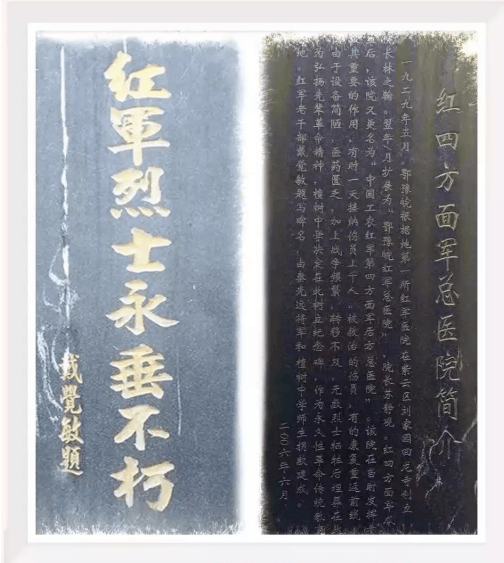 红軍烈士永垂不朽
戴覺敏題
红四方面军总医院简介
一九二九年五月，鄂豫皖根据地第一所红军医院在紫云区刘家园回龙寺创立
长林之翰。翌年八月扩展为“鄂豫皖红军总医院”，院长苏井观。红四方面军
后，该院又更名为“中国工农红军第四方面军后方总医院”。该院在当时发挥
其重要的作用，有时一天接纳伤员上千人。被救治的伤员，有的康复重返前线，
由于设备简陋，医药匮乏，加上战争频繁，转移不及，无数烈士牺牲后埋葬在此
为弘扬先辈革命精神，檀树中学决定在此树立纪念碑，作为永久性革命传统教
地。红军老干部戴觉敏题写碑名，由秦先远将军和檀树中学师生捐款建成。
二〇〇六年六月